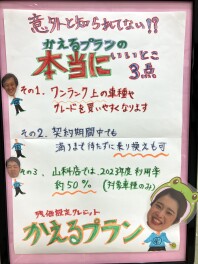 意外と知られてない!?
かえるプランの
本当にいいとこ
3点
その1. ワンランク上の車種や
グレードを買いやすくなります
その2. 契約期間中でも
満了まで待たずに乗り換えも可
その3. 山科店では2023年度利用率
約50% (対象車種のみ)
残価設定クレジット
かえるプラン